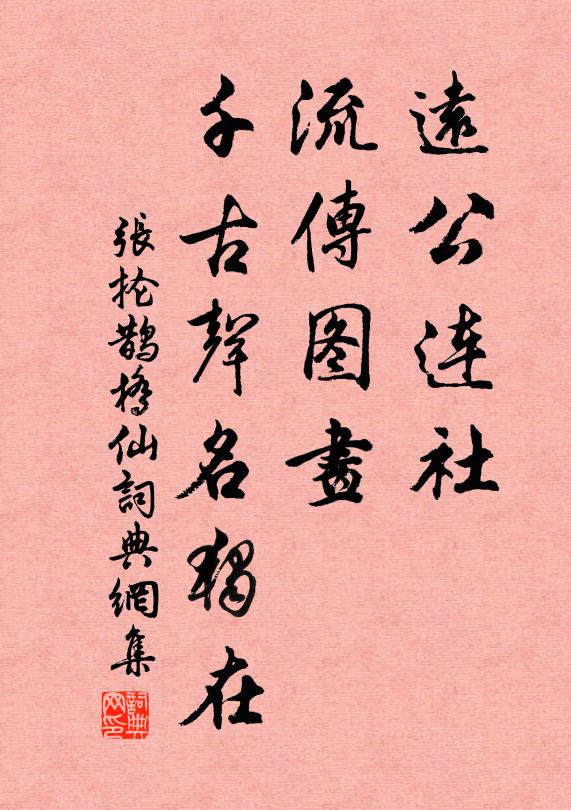 遠公连社
流傳图畫
千古聲名獨在
張抡鵲橋仙詞典網集
詞典网印